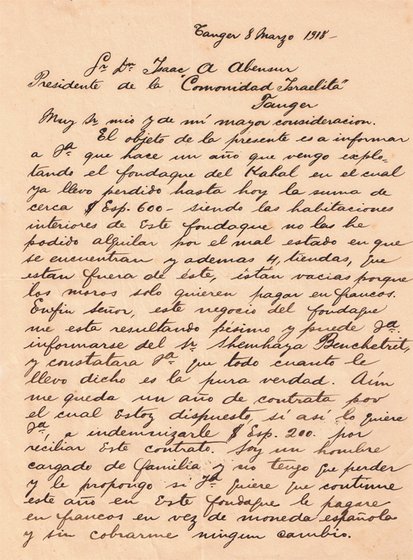 Tanger 8 Marzo 1918-
Sr Dn Isaac A Abensur
Presidente de la "Comunidad Israelita"
Tanger
Muy Sr mio y de mi mayor consideracion.
El objeto de la presente es a informar
a Vd que hace un año que vengo explo-
tando el fondaque del Kahal en el cual
ya llevo perdido hasta hoy la suma de
cerca $ Esp. 600- siendo las habitaciones
interiores de este fondaque no las he
podido alquilar por el mal estado en que
se encuentran y ademas 4, tiendas, que
estan fuera de éste, están vacias porque
los moros solo quieren pagar en francos.
Enfin Señor, este negocio del fondaque
me esta resultando pésimo y puede Vd.
informarse del Sr Shemhaya Benchetrit
y constatara Vd que todo cuanto le
llevo dicho es la pura verdad. Aúm
me queda un año de contrata por
el cual estoy dispuesto, si así lo quiere
Vd, a indemnizarle $ Esp. 200. por
reciliar este contrato. Soy un hombre
cargado de familia y no tengo que perder
y le propongo si Vd quiere que continue
este año en este fondaque le pagare
en francos en vez de moneda española
y sin cobrarme ningum cambio.